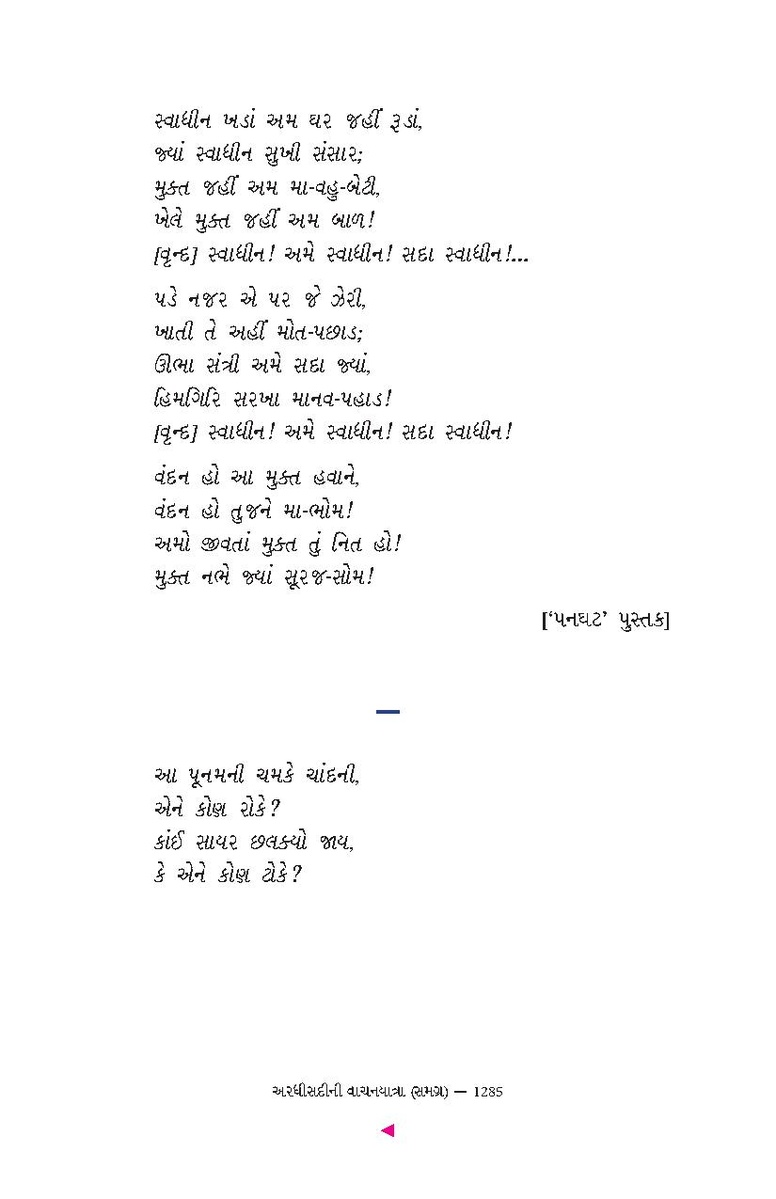 સ્વાધીન ખડાં અમ ઘર જહીં રૂડાં,
જ્યાં સ્વાધીન સુખી સંસાર;
મુક્ત જહીં અમ મા-વહુ-બેટી,
ખેલે મુક્ત જહીં અમ બાળ!
[વૃન્દ] સ્વાધીન! અમે સ્વાધીન! સદા સ્વાધીન!...
પડે નજર એ પર જે ઝેરી,
ખાતી તે અહીં મોત-પછાડ;
ઊભા સંત્રી અમે સદા જ્યાં,
હિમગિરિ સરખા માનવ-પહાડ!
[વૃન્દ] સ્વાધીન! અમે સ્વાધીન! સદા સ્વાધીન!
વંદન હો આ મુક્ત હવાને,
વંદન હો તુજને મા-ભોમ!
અમો જીવતાં મુક્ત તું નિત હો!
મુક્ત નભે જ્યાં સૂરજ-સોમ!
[‘પનઘટ’ પુસ્તક]
આ પૂનમની ચમકે ચાંદની,
એને કોણ રોકે?
કાંઈ સાયર છલક્યો જાય,
કે એને કોણ ટોકે?
અરધીસદીની વાચનયાત્રા (સમગ્ર) — 1285